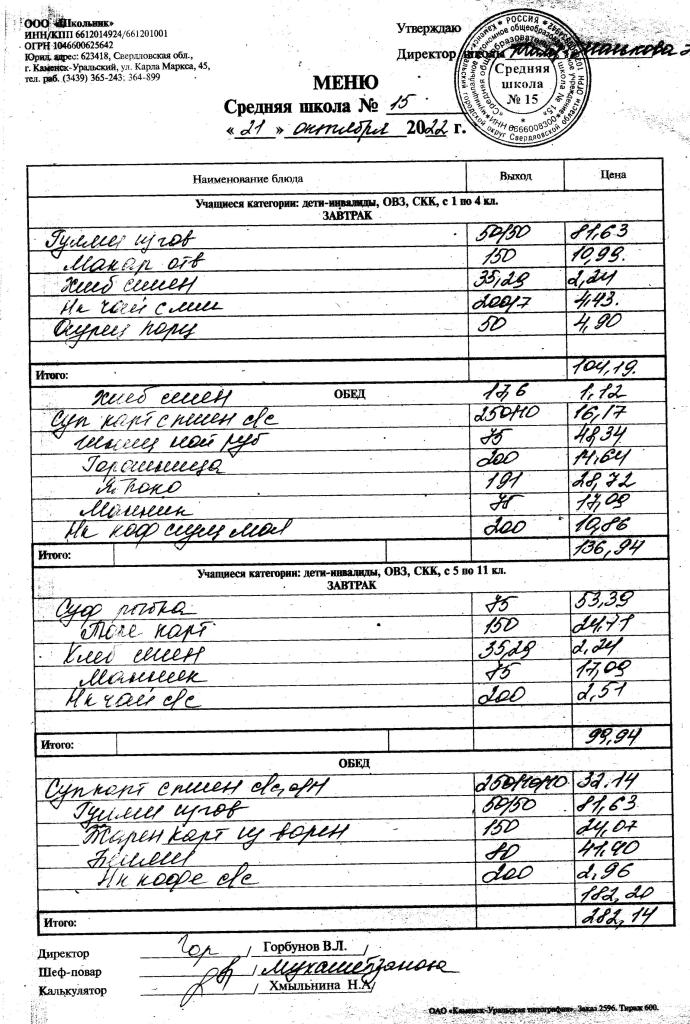 ООО «Школьник»
ИНН/КПП 6612014924/661201001
ОГРН 1046600625642
Юрид. адрес: 623418, Свердловская обл.,
г. Каменск-Уральский, ул. Карла Маркса, 45,
тел. раб. (3439) 365-243; 364-899
Утверждаю
Директор школы
Средняя школа № 15
МЕНЮ
Средняя школа № 15
« 21 » октября 2022 г.
Наименование блюда Выход Цена
Учащиеся категории: дети-инвалиды, ОВЗ, СКК, с 1 по 4 кл.
ЗАВТРАК
Гуляш из гов 50/50 81,63
Макар отв 150 10,99.
Хлеб пшен 35,29 2,24
Нк чай с лим 200/7 4,43.
Огурец порц 50 4,90
Итого: 104,19.
ОБЕД
Хлеб пшен 17,6 1,12
Суп карт с пшен с/с 250/10 16,17
75 48,34
Горошница 200 14,64
Яблоко 191 28,72
Манник 75 17,09
Нк коф сгущ мол 200 10,86
Итого: 136,94
Учащиеся категории: дети-инвалиды, ОВЗ, СКК, с 5 по 11 кл.
ЗАВТРАК
рыбка 75 53,39
карт 150 24,71
Хлеб пшен 35,29 2,24
Манник 75 17,09
Нк чай с/с 200 2,51
Итого: 99,94
ОБЕД
Суп карт с пшен 250/10/10 32.14
Гуляш из гов 50/50 81,63
Жарен карт из варен 150 24,07
80 41,40
Нк кофе с/с 200 2,96
182,20
Итого: 282,14
Директор Гор / Горбунов В.Л. /
Шеф-повар /
Калькулятор / Хмыльнина Н.А/
ОАО «Каменск-Уральская типография». Заказ 2596. Тираж 600.